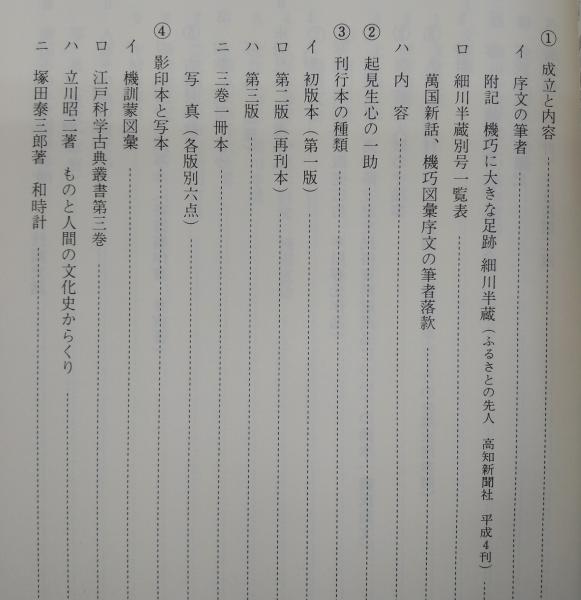 ① 成立と内容
イ 序文の筆者
附記 機巧に大きな足跡 細川半蔵(ふるさとの先人 高知新聞社 平成4刊)
ロ 細川半蔵別号一覧表
萬国新話、機巧図彙序文の筆者落款
ハ 内容
② 起見生心の一助
③ 刊行本の種類
イ 初版本(第一版)
ロ 第二版(再刊本)
ハ 第三版
ニ 三巻一冊本
写真(各版別六点)
④ 影印本と写本
イ 機訓蒙図彙
ロ 江戸科学古典叢書第三巻
ハ 立川昭二著 ものと人間の文化史からくり
ニ 塚田泰三郎著 和時計